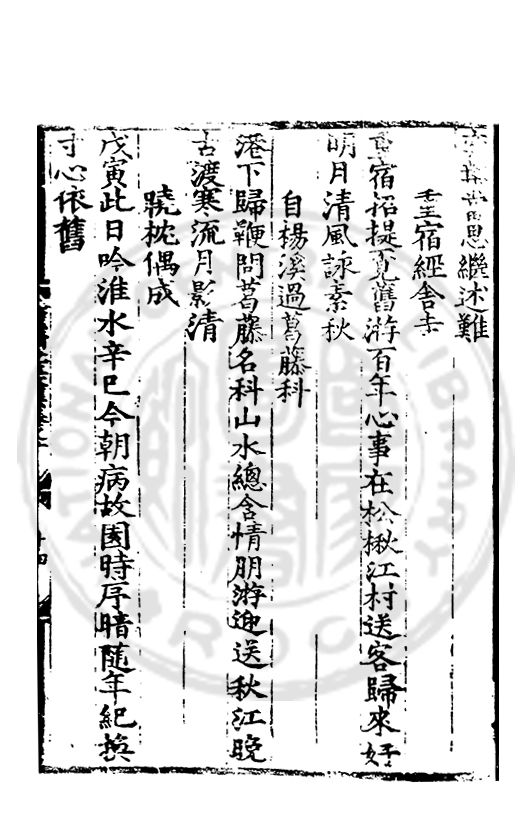 思繼述難
重宿經舍寺
重宿招提覓舊游百年心事在松楸江村送客歸來好
明月清風詠素秋
自楊溪過葛藤科
港下歸鞭問葛藤名科山水總含情朋游迎送秋江晚
古渡寒流月影清
曉枕偶成
戊寅此日吟淮水辛巳今朝病故園時序暗隨年紀換
寸心依舊
十四